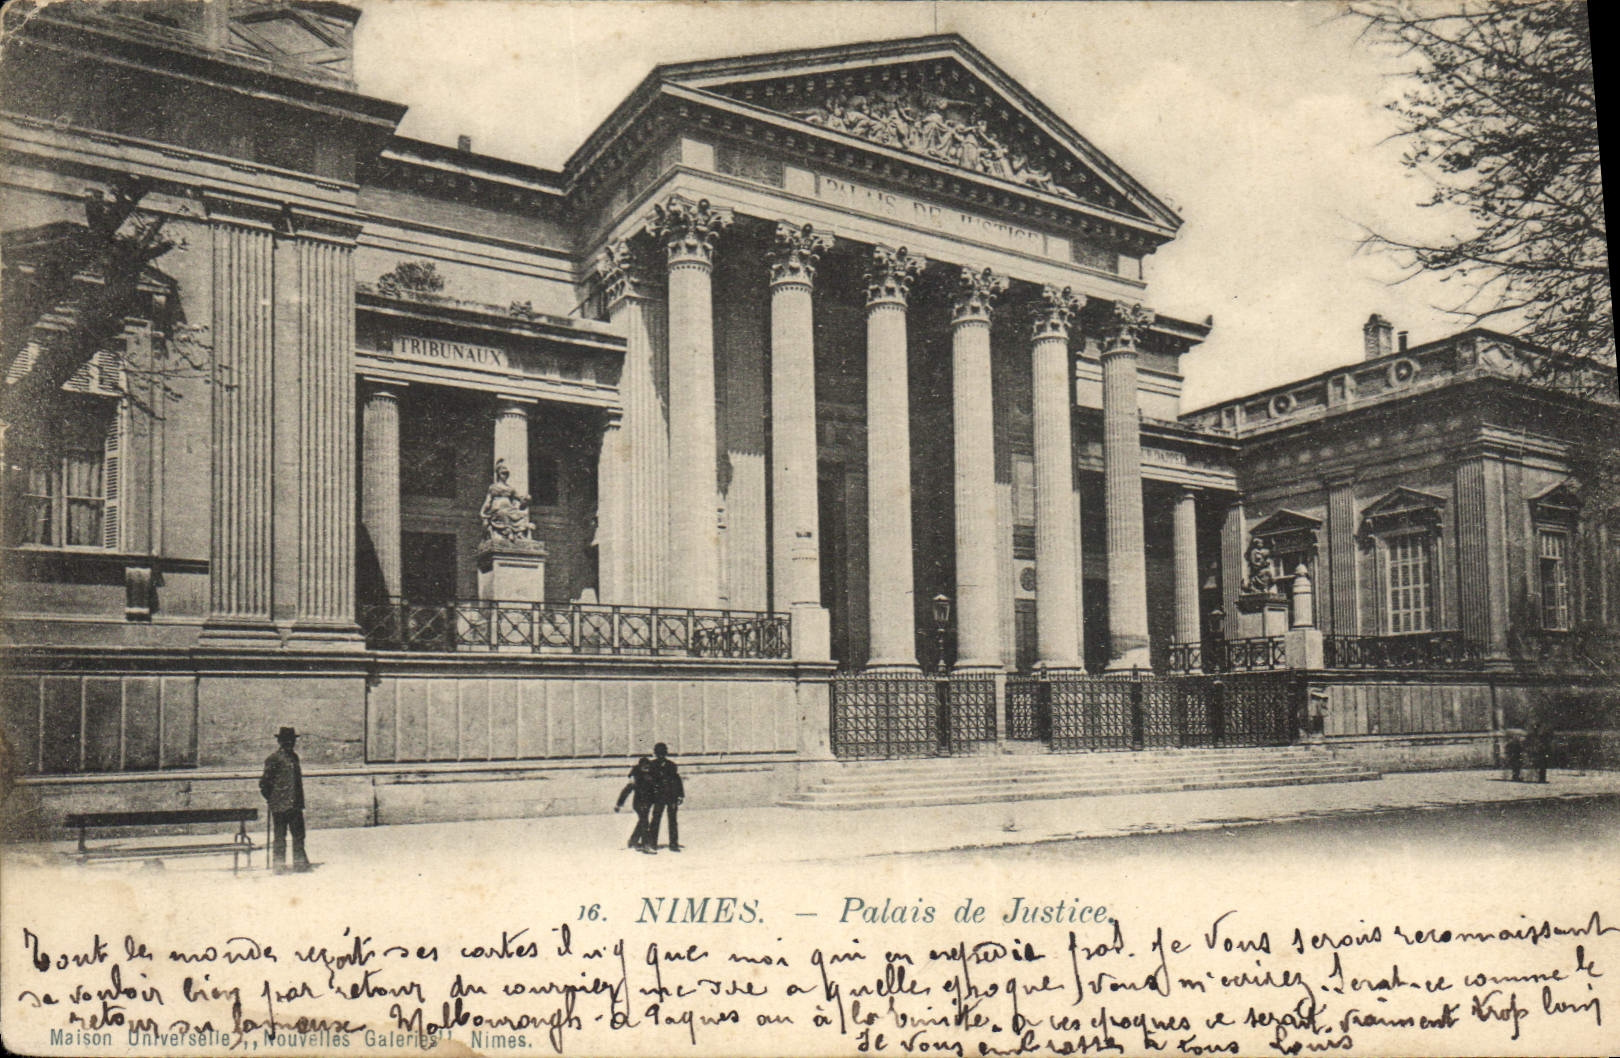 PALAIS DE JUSTICE
TRIBUNAUX
16. NIMES. — Palais de Justice.
Tout le monde reçoit ses cartes il n'y que moi qui en expédie pas. Je vous serais reconnaissant
de vouloir bien par retour du courrier me dire a quelle époque vous m'ecrirez. Serat-ce comme le
retour du fameux Malbourough - a Paques ou à la trinité. a ces epoques ce serait vraiment trop loin
Je vous embrasse à tous Louis
Maison Universelle ,, Nouvelles Galeries" Nimes.